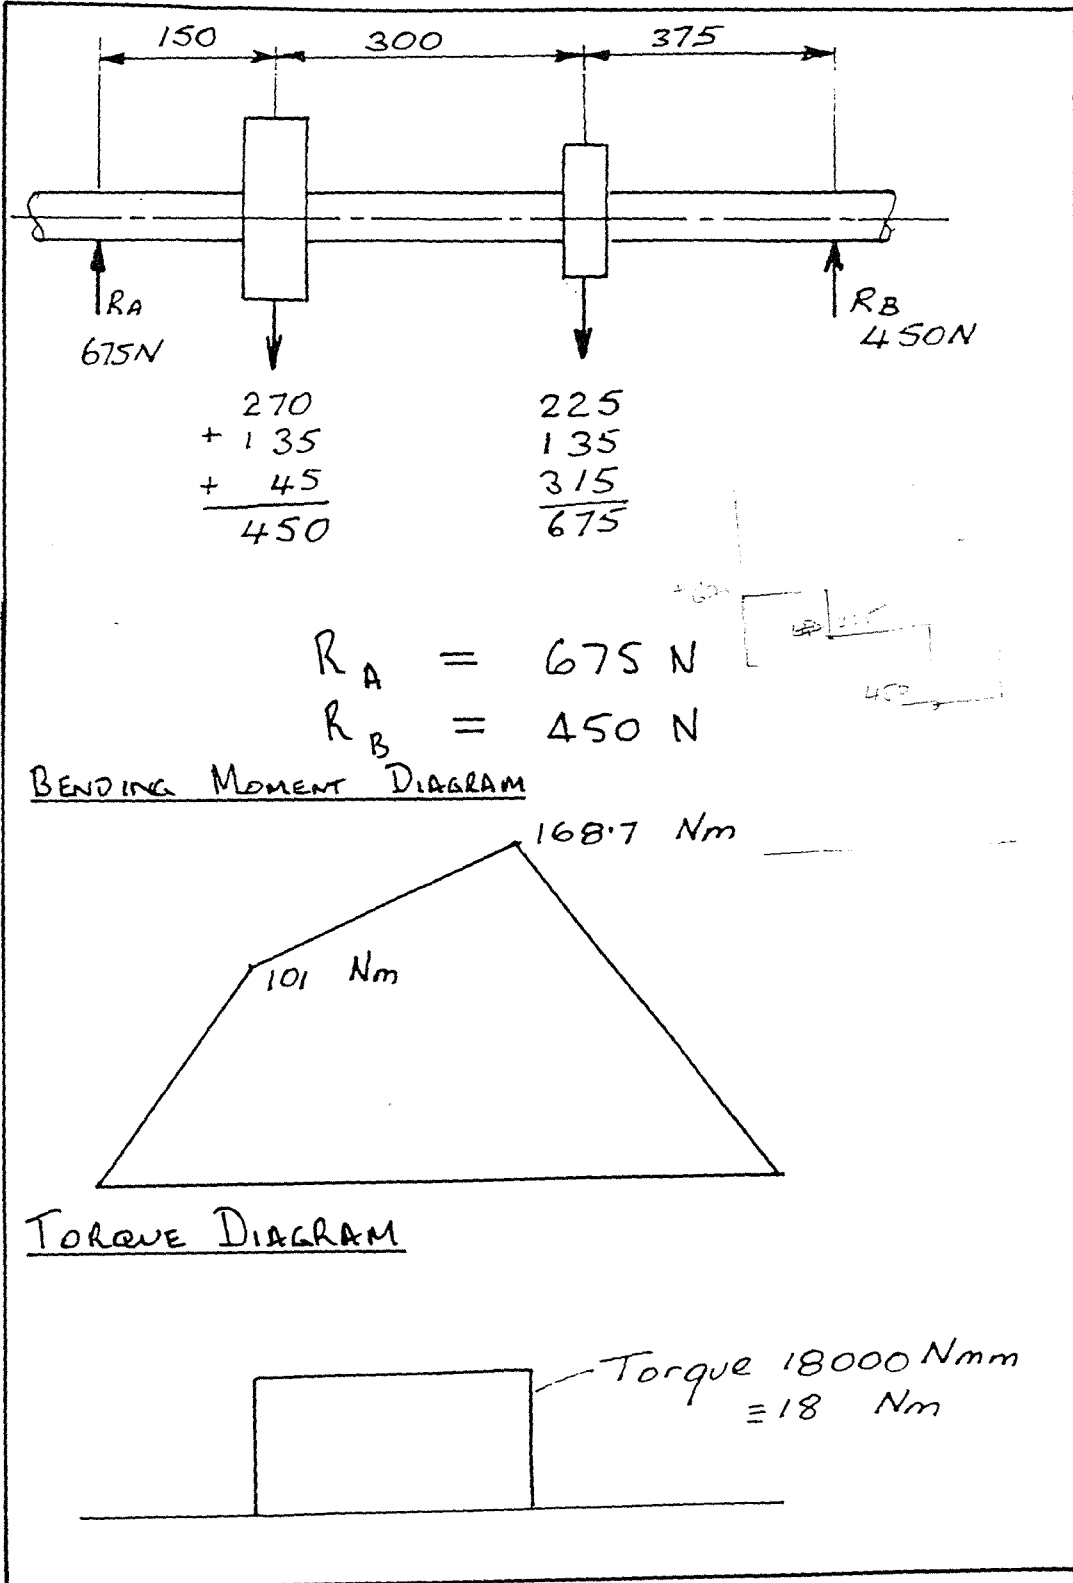 150 300 375
RA
675N
RB
450N
270
+ 135
+ 45
450
225
135
315
675
RA = 675 N
RB = 450 N
BENDING MOMENT DIAGRAM
168.7 Nm
101 Nm
TORQUE DIAGRAM
Torque 18000 Nmm
≡ 18 Nm